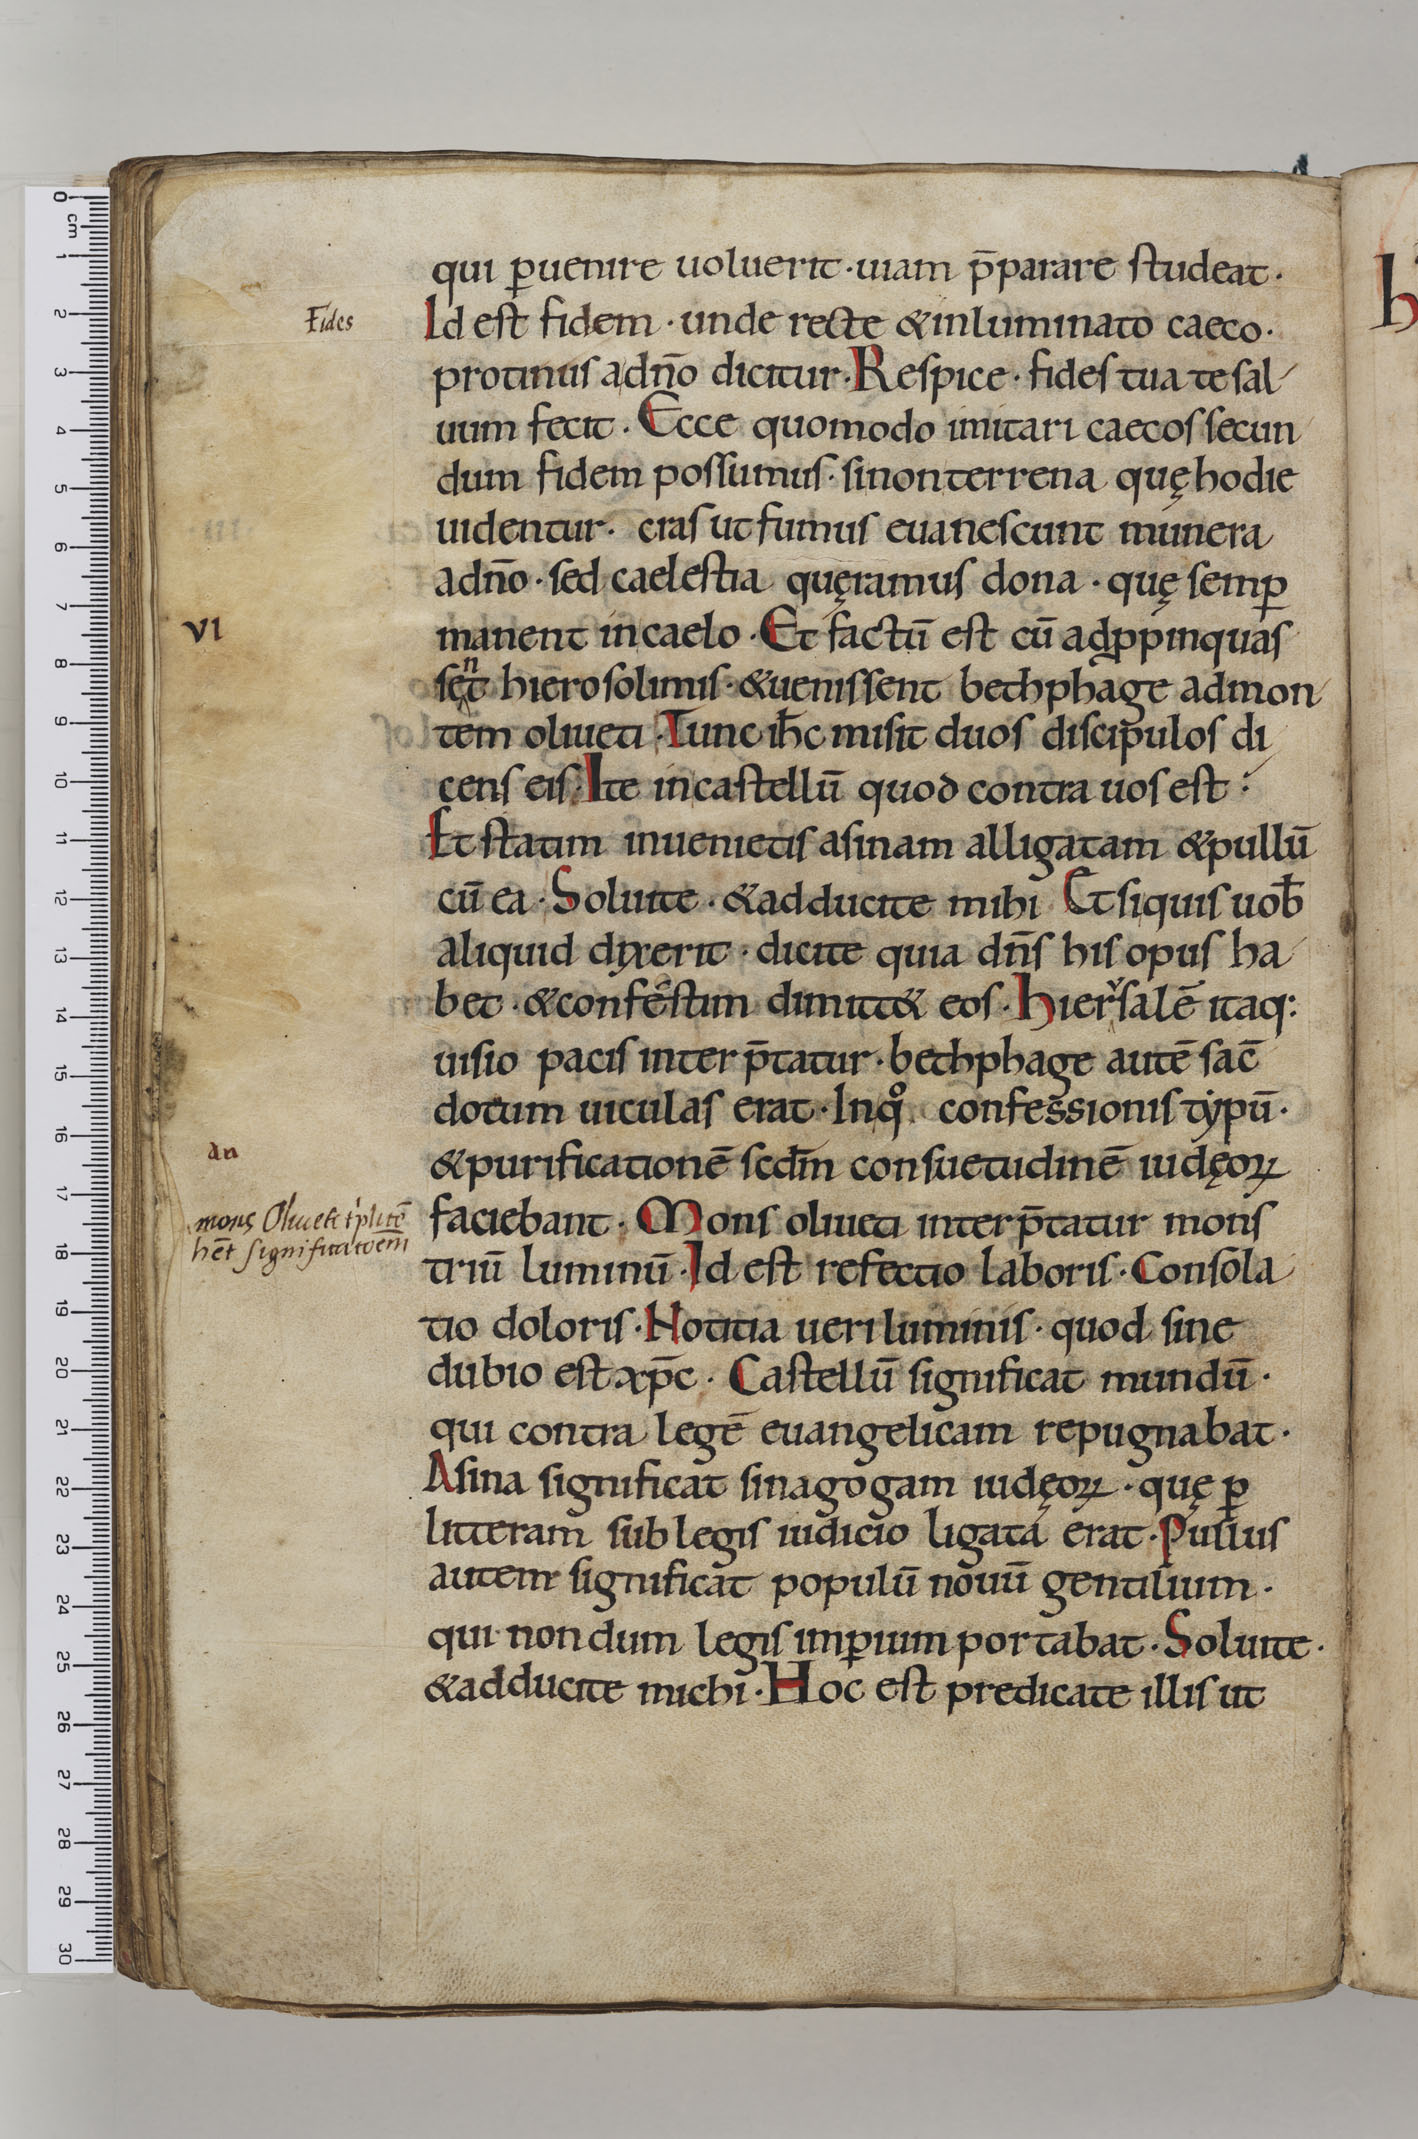 qui ꝑuenire uoluerit · uiam p̄parare studeat ·
Fides
Id est fidem · unde recte & inluminato caeco ·
protinus a dn̄o dicitur · Respice · fides tua te sal
uum fecit · Ecce quomodo imitari caecos secun
dum fidem possumus · si non terrena quę hodie
uidentur · cras ut fumus euanescunt munera
a dn̄o · sed caelestia quęramus dona · quę semꝑ
VI
manent in caelo · Et factū est cū adꝓpinquas
sent hierosolimis · & uenissent bethphage ad mon
tem oliueti · Tunc ih̄c misit duos discipulos di
cens eis · Ite in castellū quod contra uos est ·
Et statim inuenietis asinam alligatam & pullū
cū ea · Soluite · & adducite mihi Et siquis uob̄
aliquid dixerit · dicite quia dn̄s his opus ha
bet · & confestim dimitt& eos · Hierꝰsalē itaq:
uisio pacis interp̄tatur · bethphage autē sac̄
dotum uiculas erat · In qͦ confessionis typū ·
an
& purificationē scdm̄ consuetudinē iudęoꝝ
mons Oliueti t'plicē
hēt significatōem
faciebant · Mons oliueti interp̄tatur mons
triū luminū · Id est refectio laboris · Consola
tio doloris · Notitia ueri luminis · quod sine
dubio est xp̄c · Castellū significat mundū ·
qui contra legē euangelicam repugnabat ·
Asina significat sinagogam iudęoꝝ · quę ꝑ
litteram sub legis iudicio ligata erat · Pullus
autem significat populū nouū gentilium ·
qui nondum legis imꝑium portabat · Soluite ·
& adducite michi · Hoc est predicate illis ut
h